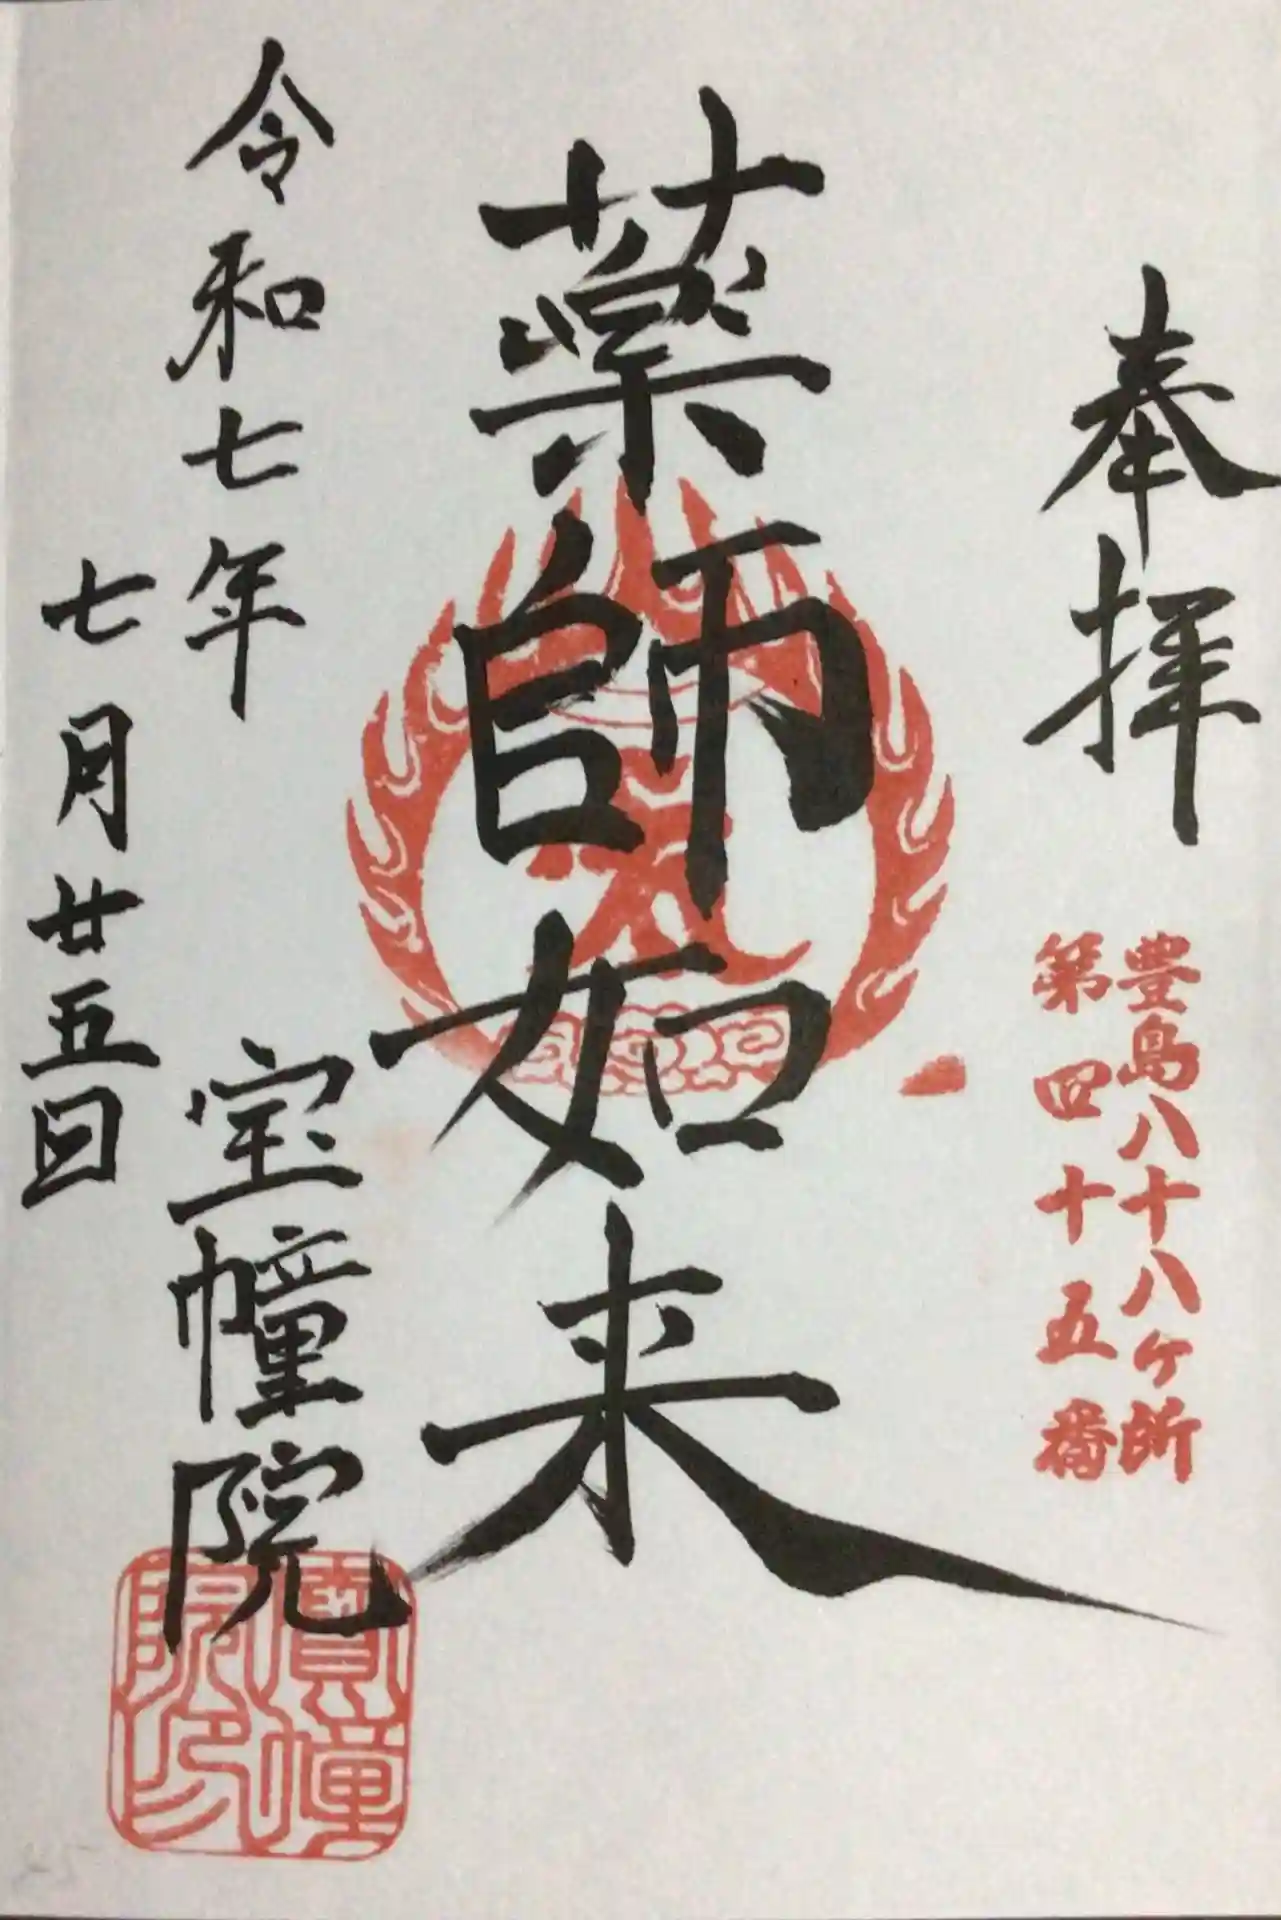 奉拝
豊島八十八ヶ所
第四十五番
薬師如来
令和七年
七月廿五日
宝幢院
寶幢
院印